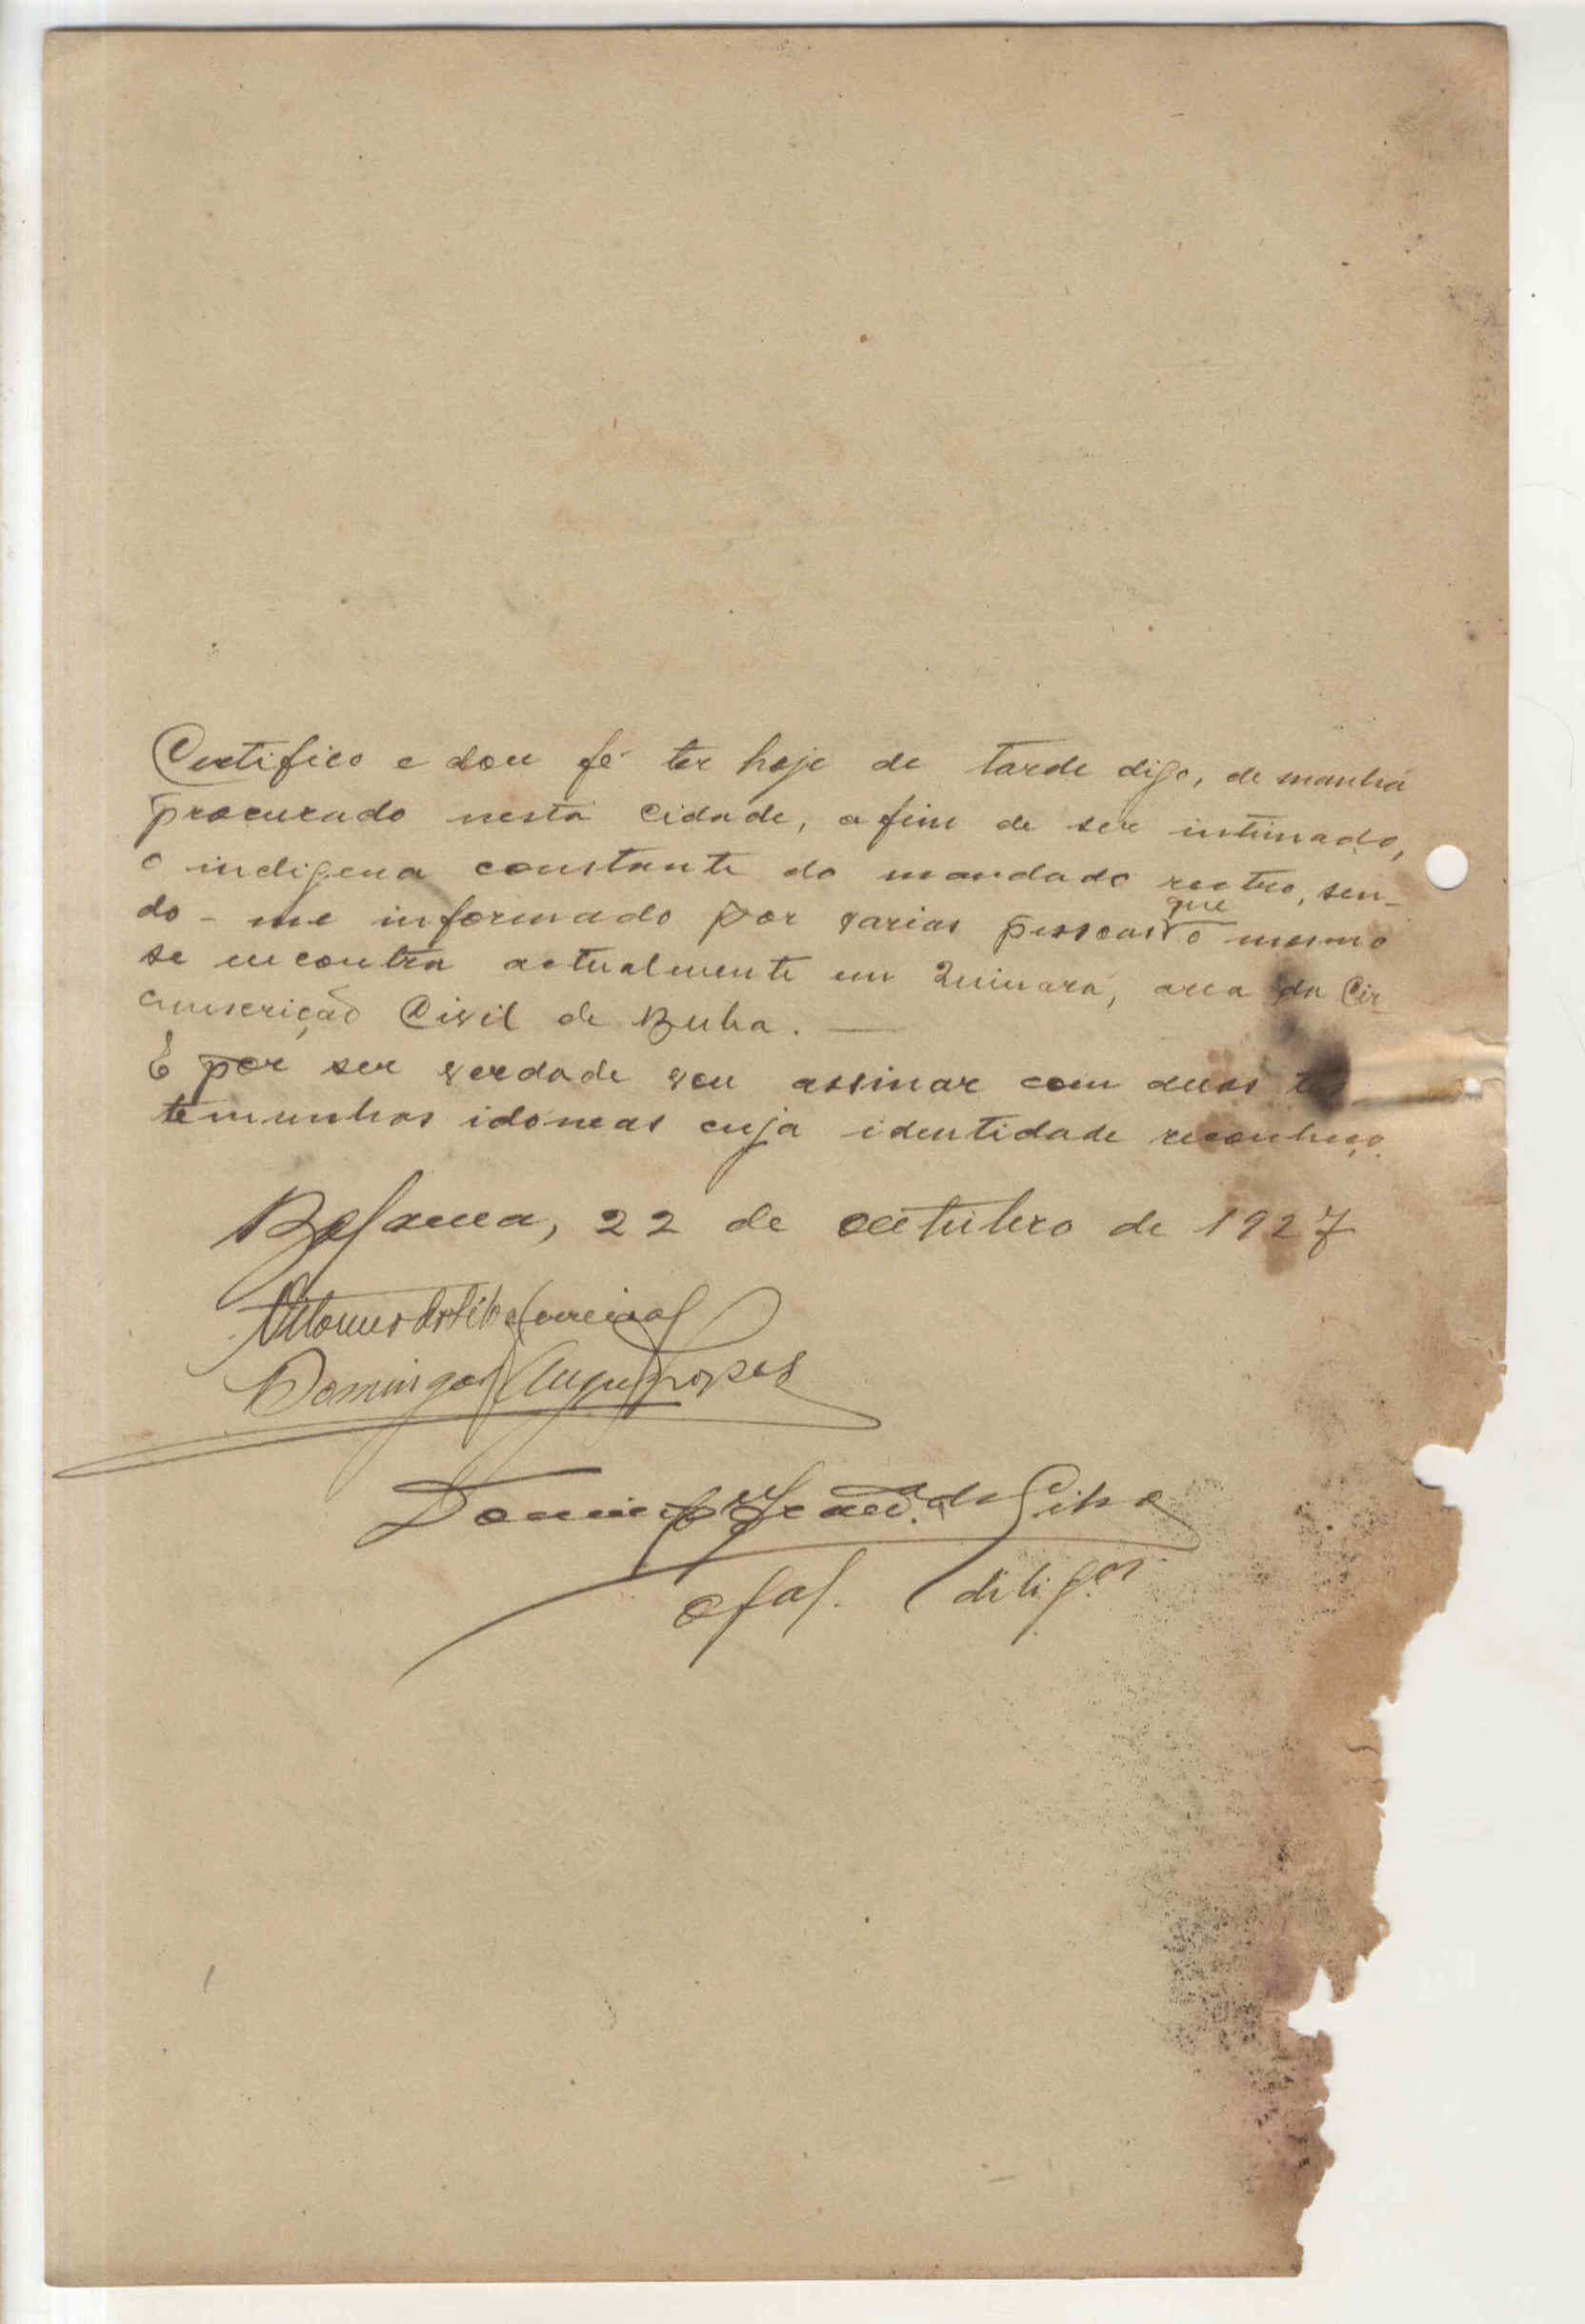 Certifico e dou fé ter hoje de tarde digo, de manhã
procurado nesta cidade, a fim de ser intimado,
o indigena constante do mandado rectro, sen-
do-me informado por varias pessoas que o mesmo
se encontra actualmente em Quinara, area da Cir-
cunscrição Civil de Buba. —
E por ser verdade vou assinar com duas tes-
temunhas idoneas cuja identidade reconheço.
Bolama, 22 de outubro de 1927
Domingos Lopes
da Silva
Ofal. dilig.as